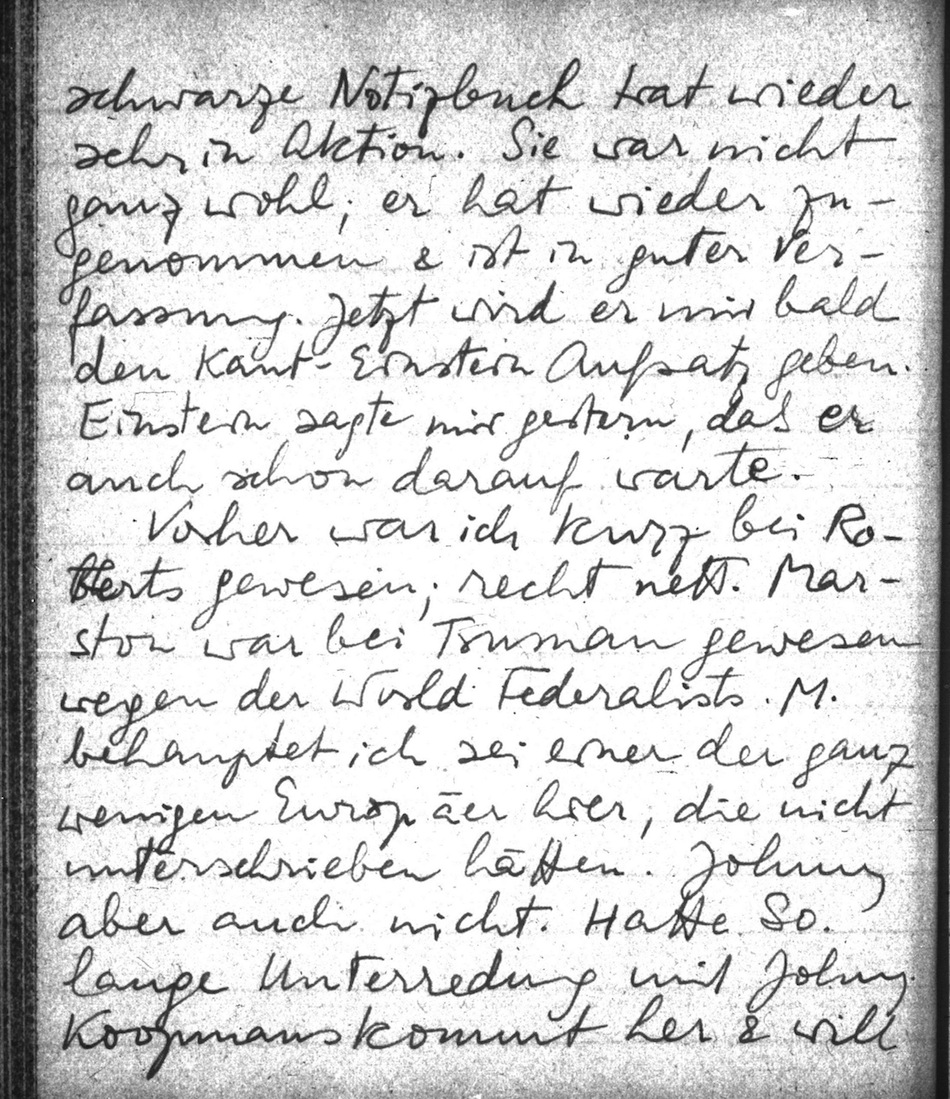 schwarze Notizbuch trat wieder
sehr in Aktion. Sie war nicht
ganz wohl; er hat wieder zu-
genommen & ist in guter Ver-
fassung. Jetzt wird er mir bald
den Kant-Einstein Aufsatz geben.
Einstein sagte mir gestern, daß er
auch schon darauf warte.
Vorher war ich kurz bei Ro-
berts gewesen; recht nett. Mar-
ston war bei Truman gewesen
wegen der World Federalists. M.
behauptet ich sei einer der ganz
wenigen Europäer hier, die nicht
unterschrieben hätten. Johnny
aber auch nicht. Hatte So.
lange Unterredung mit Johny.
Koopmans kommt her & will